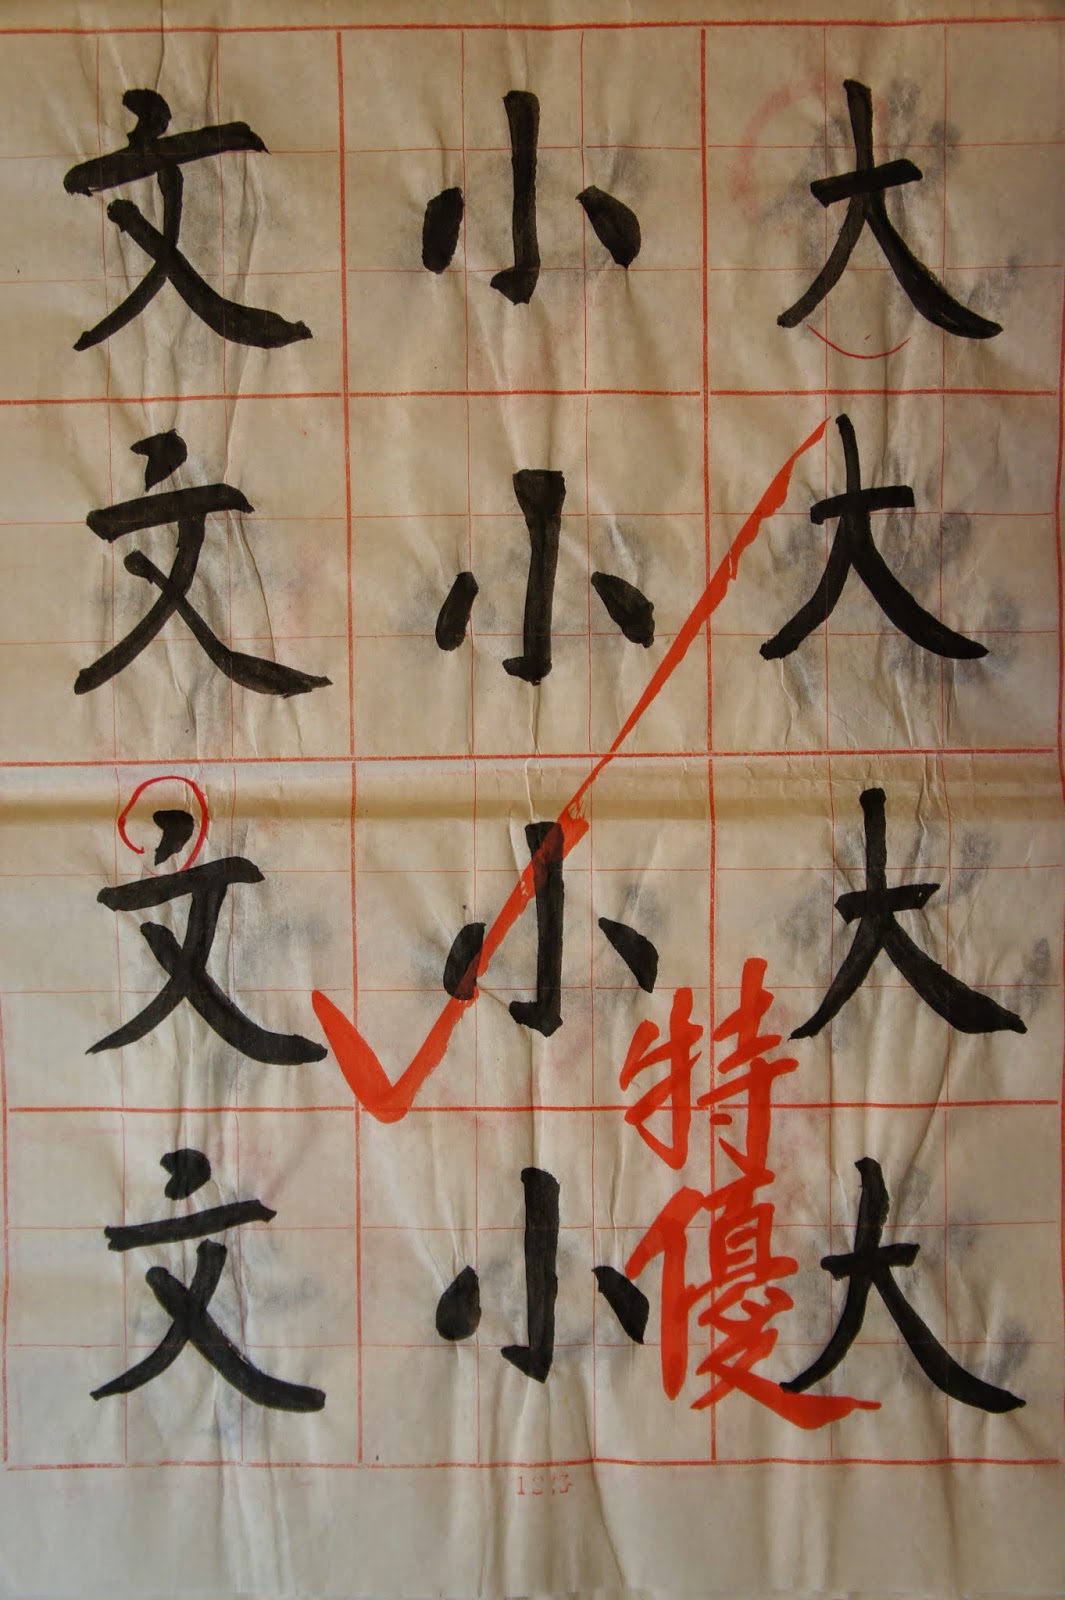 大大大大
小小小小
文文文文
特優